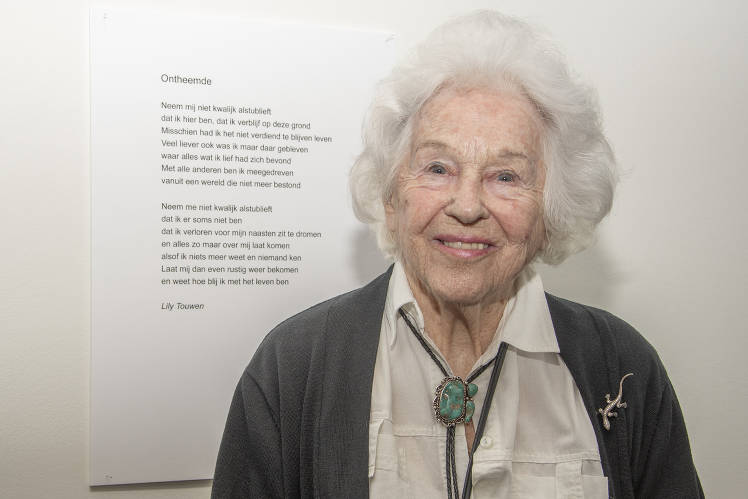 Ontheemde
Neem mij niet kwalijk alstublieft
dat ik hier ben, dat ik verblijf op deze grond
Misschien had ik het niet verdiend te blijven leven
Veel liever ook was ik maar daar gebleven
waar alles wat ik lief had zich bevond
Met alle anderen ben ik meegedreven
vanuit een wereld die niet meer bestond
Neem me niet kwalijk alstublieft
dat ik er soms niet ben
dat ik verloren voor mijn naasten zit te dromen
en alles zo maar over mij laat komen
alsof ik niets meer weet en niemand ken
Laat mij dan even rustig weer bekomen
en weet hoe blij ik met het leven ben
Lily Touwen